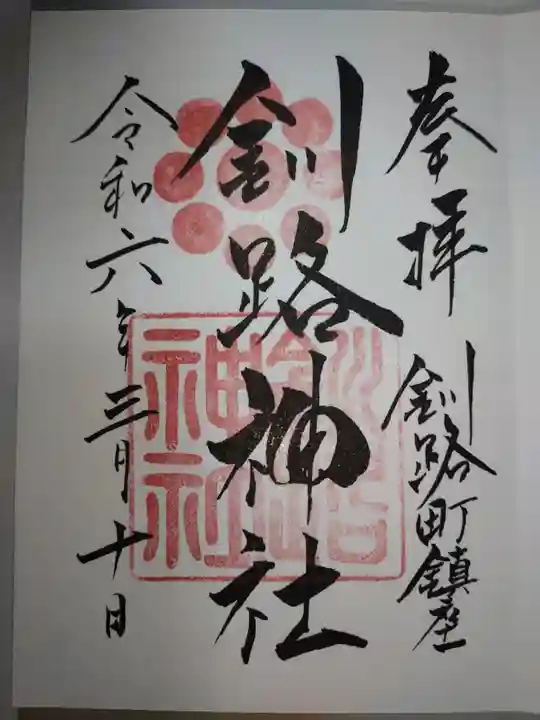 奉拝
釧路町鎮座
釧路神社
釧路神社
令和六年三月十日